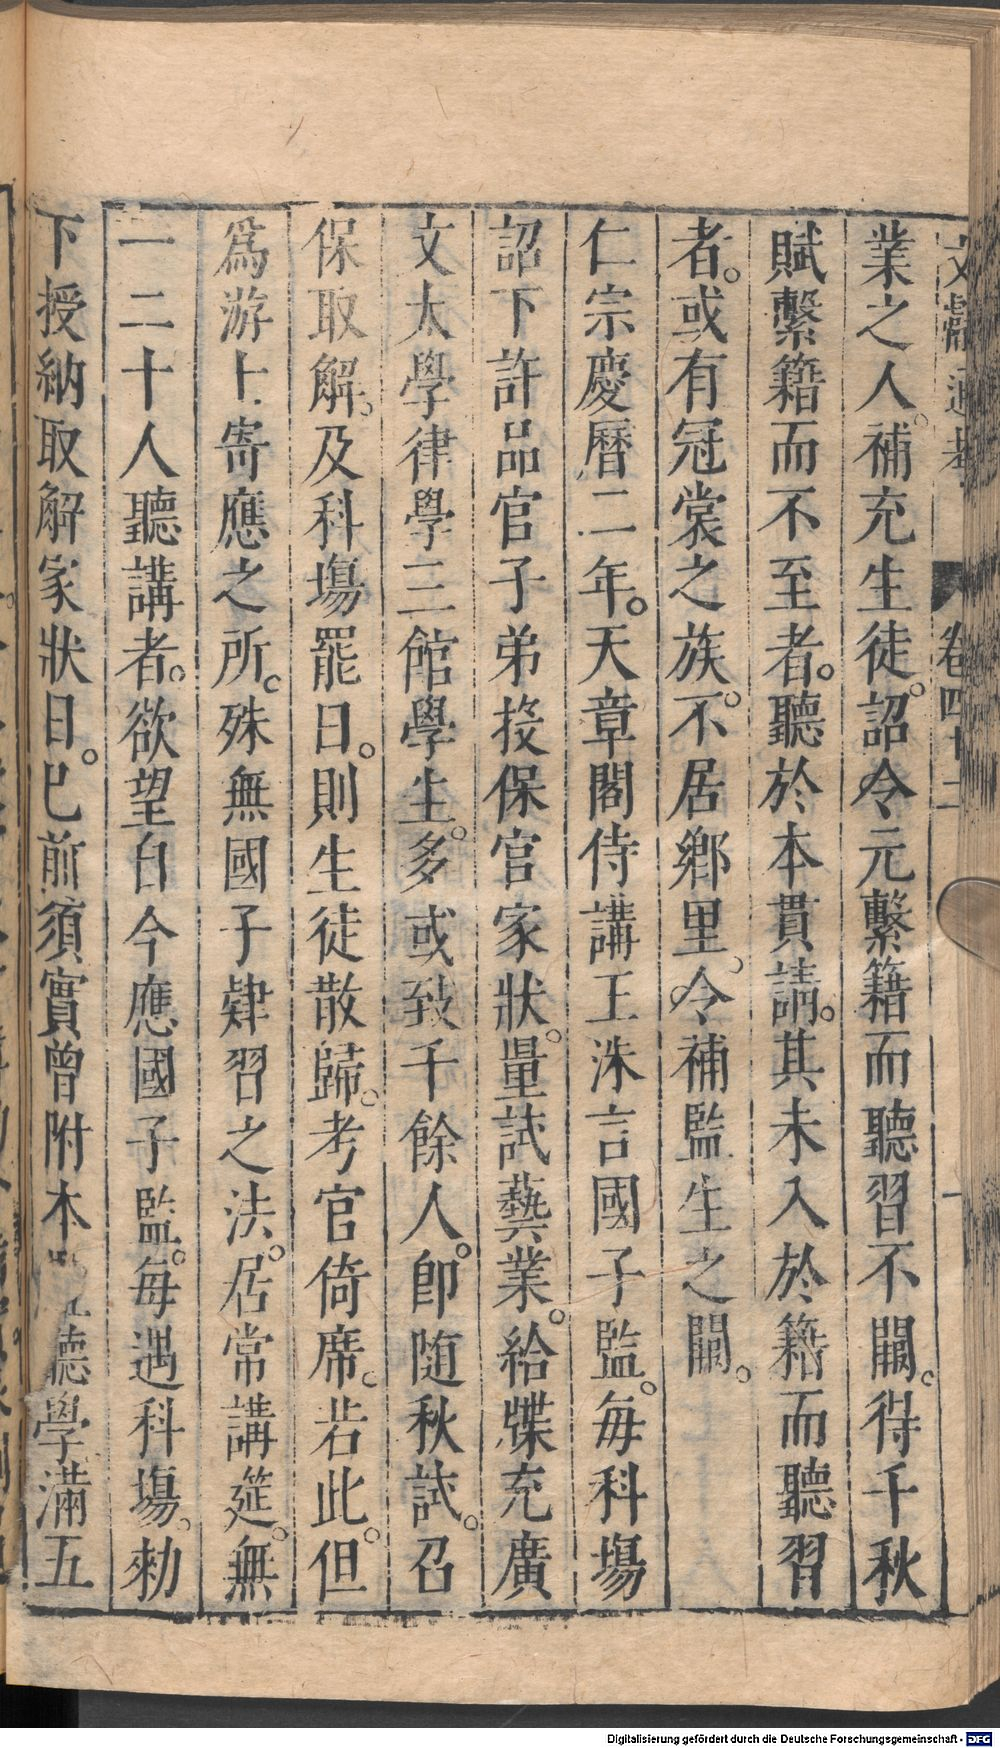 文獻通考 卷四十二 一
業之人補充生徒。詔令元繫籍而聽習不闕。得千秋
賦繫籍而不至者。聽於本貫請。其未入於籍而聽習
者。或有冠裳之族。不居鄉里。令補監生之闕。
仁宗慶曆二年。天章閣侍講王洙言國子監。每科塲
詔下許品官子弟投保官家狀。量試藝業。給牒充廣
文太學律學三館學生。多或致千餘人。即随秋試。召
保取解。及科塲罷日。則生徒散歸。考官倚席。若此。但
為游士寄應之所。殊無國子肄習之法。居常講筵。無
一二十人聽講者。欲望自今應國子監。每遇科塲。勑
下授納取解家狀日。已前須實曾附本 聽學滿五
Digitalisierung gefördert durch die Deutsche Forschungsgemeinschaft - DFG